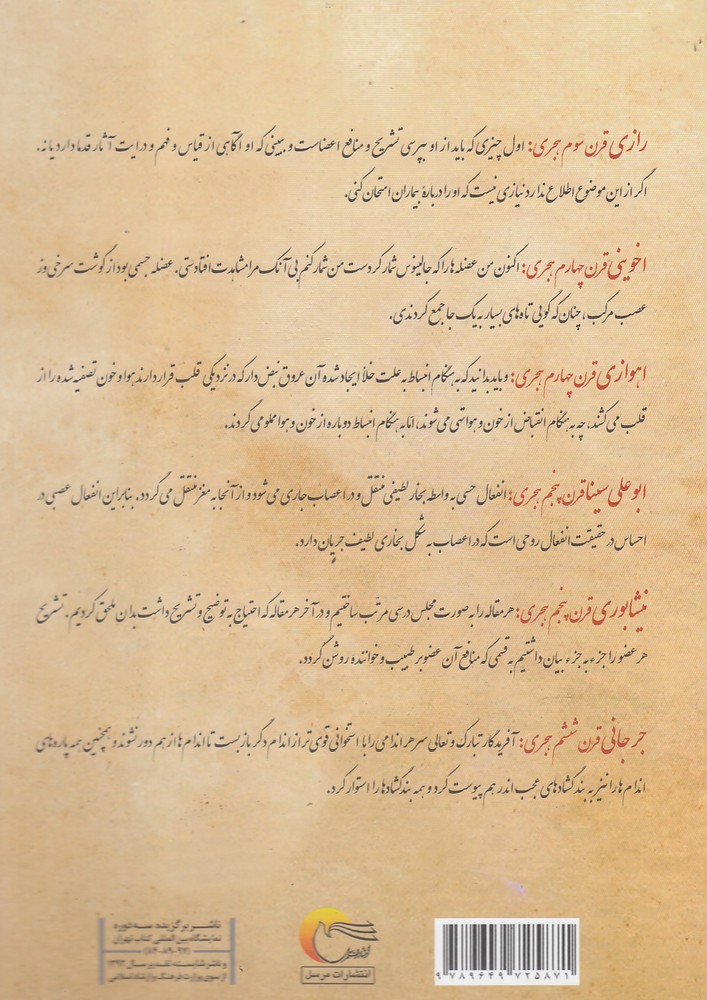 رازی قرن سوم هجری: اول چیزی که باید از او بپرسی تشریح و منافع اعضاست و ببینی که او آگاهی از قیاس و فهم و درایت آثار قدما دارد یا نه.
اگر از این موضوع اطلاع ندارد نیازی نیست که او را دربارهٔ بیماران امتحان کنی.
اخوینی قرن چهارم هجری: اکنون من عضله ها را که جالینوس شمار کردست من شمار کنم بی آنک مرا مشاهدت افتادستی. عضله جسمی بود از گوشت سرخ و ز
عصب مرکب، چنان که گویی تاه های بسیار به یک جا جمع کردندی.
اهوازی قرن چهارم هجری: و باید بدانید که به هنگام انبساط به علت خلأ ایجاد شده آن عروق نبض دار که در نزدیکی قلب قرار دارند هوا و خون تصفیه شده را از
قلب می کشند، چه به هنگام انقباض از خون و هوا تهی می شوند، اما به هنگام انبساط دوباره از خون و هوا مملو می گردند.
ابوعلی سینا قرن پنجم هجری: انفعال حسی به واسطه بخار لطیفی منتقل و در اعصاب جاری می شود و از آنجا به مغز منتقل می گردد. بنابراین انفعال عصبی در
احساس در حقیقت انفعال روحی است که در اعصاب به شکل بخاری لطیف جریان دارد.
نیشابوری قرن پنجم هجری: هر مقاله را به صورت مجلس درسی مرتب ساختیم و در آخر هر مقاله که احتیاج به توضیح و تشریح داشت بدان ملحق کردیم. تشریح
هر عضو را جزء به جزء بیان داشتیم به قسمی که منافع آن عضو بر طبیب و خواننده روشن گردد.
جرجانی قرن ششم هجری: آفریدگار تبارک و تعالی سر هر اندامی را با استخوانی قوی تر از اندام دگر باز بست تا اندام ها از هم دور نشوند و همچنین همه پاره های
اندام ها را نیز به بند گشادهای عجب اندر هم پیوست کرد و همه بند گشادها را استوار کرد.
ناشر برگزیده سه دوره
نمایشگاه بین المللی کتاب تهران
(۸۴-۸۹-۹۲)
و ناشر شایسته تقدیر سال ۱۳۹۲
از سوی وزارت فرهنگ و ارشاد اسلامی
انتشارات مرسل
9 789649 725871